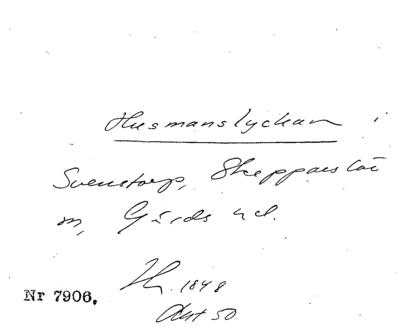 Husmanslyckan i
Svenstorp, Skepparslöv
sn, Gärds hd.
Nr 7906.
1848
50